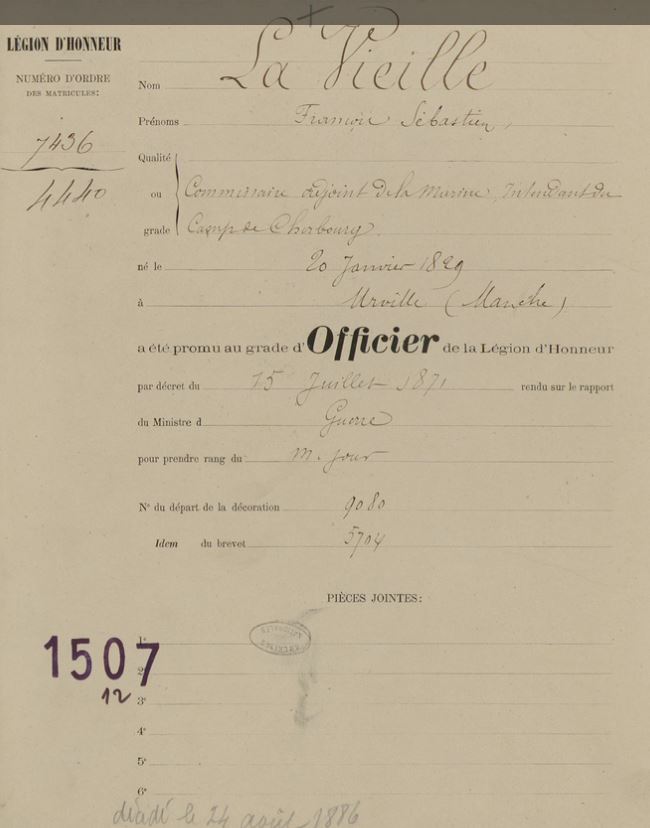 LÉGION D'HONNEUR
NUMÉRO D'ORDRE
DES MATRICULES:
7436
4440
Nom La Vieille
Prénoms François Sébastien,
Qualité
ou
grade
Commissaire adjoint de la Marine, Intendant du
Camp de Cherbourg.
né le 20 Janvier 1829
à Urville (Manche)
a été promu au grade d'Officier de la Légion d'Honneur
par décret du 15 Juillet 1871 rendu sur le rapport
du Ministre d Guerre
pour prendre rang du m. jour
N° du départ de la décoration 9080
Idem du brevet 5704
PIÈCES JOINTES:
1°
1507
2°
12
3°
4°
5°
6°
décédé le 24 août 1886